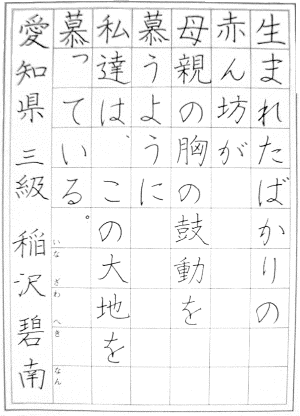 生まれたばかりの
赤ん坊が
母親の胸の鼓動を
慕うように
私達は、この大地を
慕っている。
愛知県 三級 稲沢碧南
いな ざわ へき なん